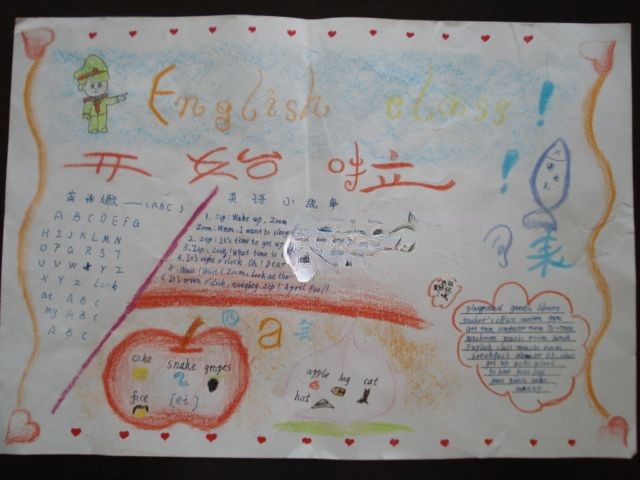 English class!
开始啦!
英语歌——(ABC)
A B C D E F G
H I J K L M N
O P Q R S T
U V W X Y Z
X Y Z Look
at A B C
my A B C
A B C
英语小故事
1. Zip: Wake up, Zoom
Zoom: Mmm. I want to sleep
2. Zip: It's time to get up
3. Zip: Look! What time is
4. It's eight o'clock. Oh! Dear
5. Wait! Wait! Zoom, look at the
6. It's seven o'clock, naughty Zip! April Fool!
来
四
a
cake
snake
grapes
face
[ei]
apple
bag
cat
hat
playground garden library
teacher's office canteen gym
art room computer room TV-room
washroom music room bench
English class music class
breakfast dinner P.E. class
get up go to school
go home go to bed